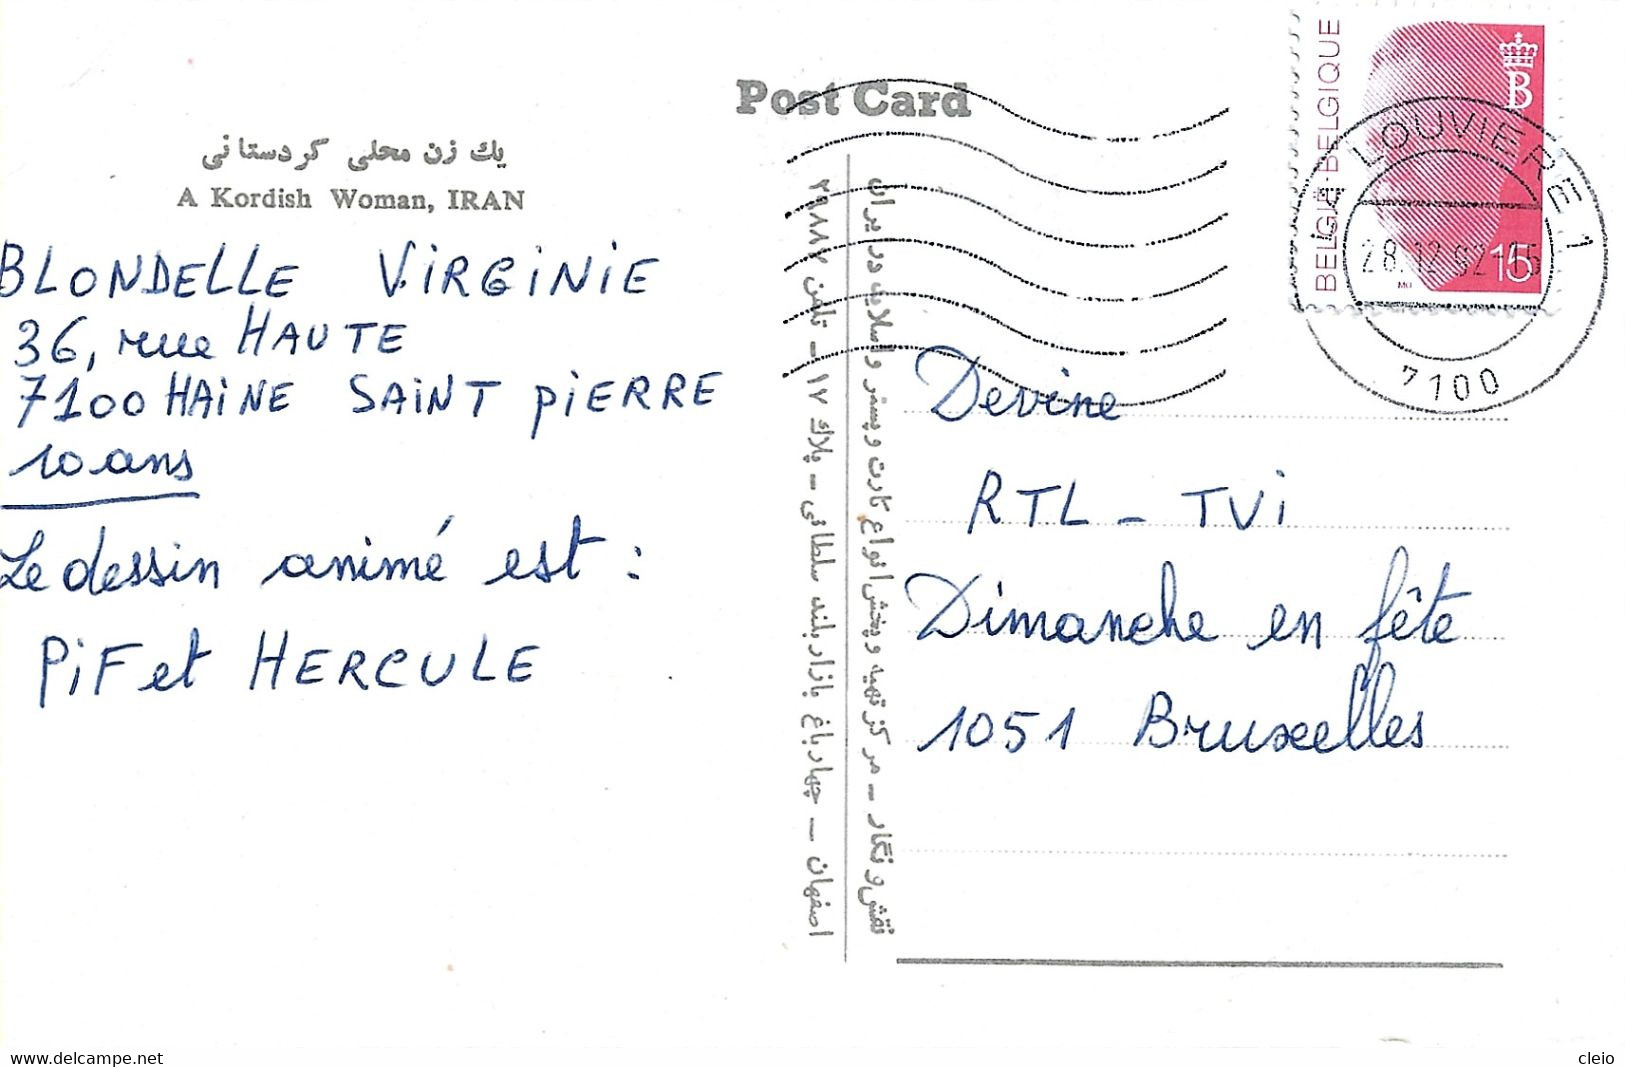 Post Card
يك زن محلی كردستانی
A Kordish Woman, IRAN
BLONDELLE VIRGINIE
36, rue HAUTE
7100 HAINE SAINT PIERRE
10 ans
Le dessin animé est :
PiF et HERCULE
نقش و نگار ــ مركز تهیه و پخش انواع كارت و پستر و اسلاید در ایران
اصفهان ــ چهارباغ بازار بلند سلطانی ــ پلاك ۱۷ ــ تلفن
BELGIË-BELGIQUE
B
15
MVTM
LA LOUVIERE 1
28.12.92
7100
Devine
RTL - TVi
Dimanche en fête
1051 Bruxelles
www.delcampe.net
cleio